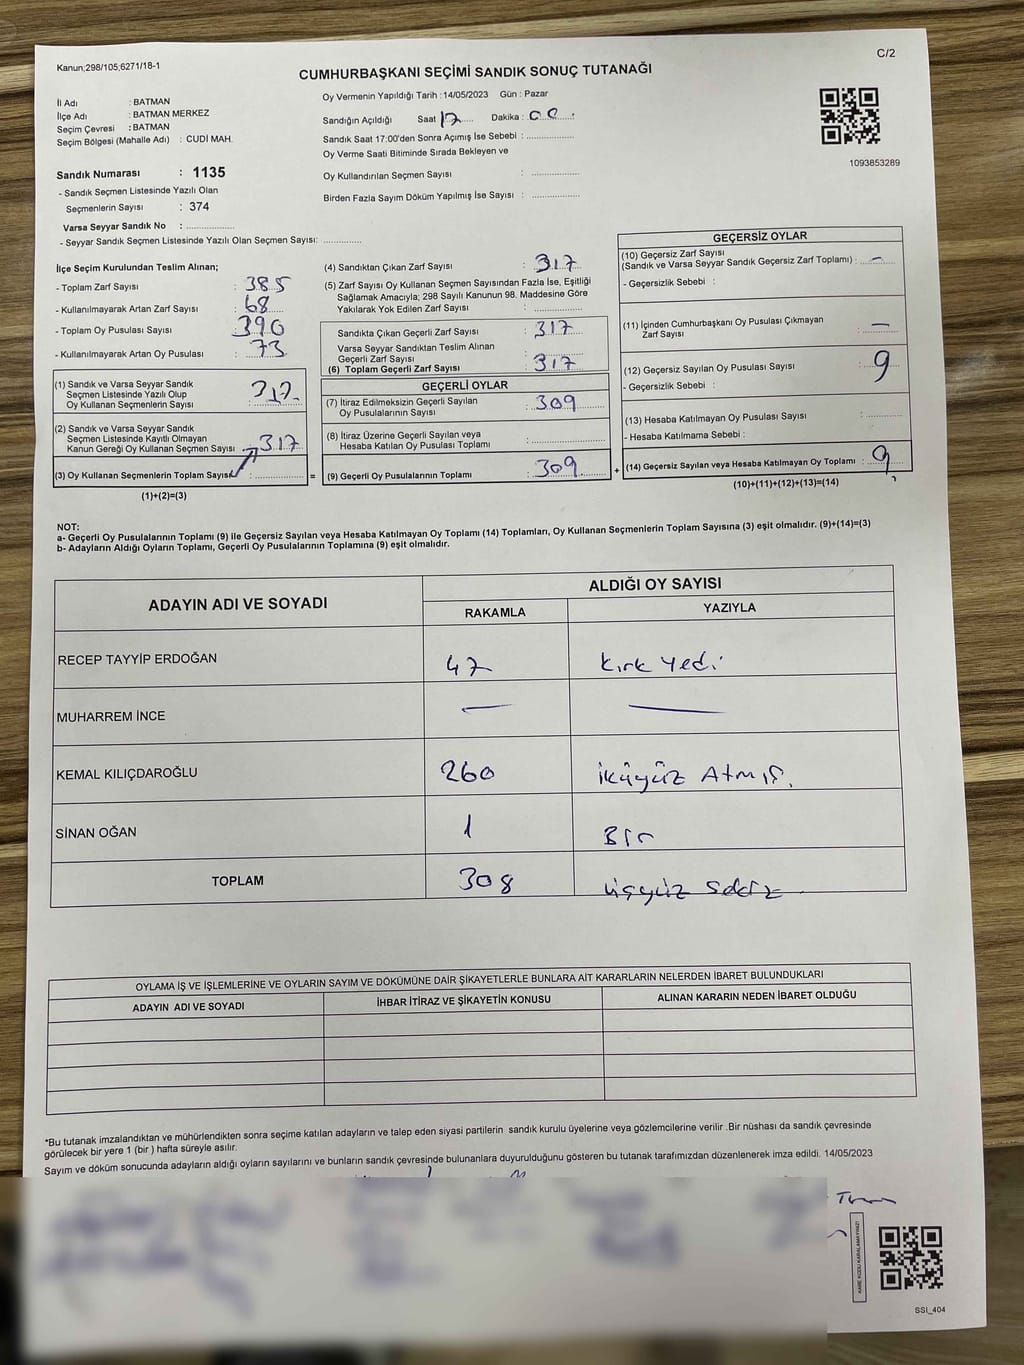 Kanun;298/105;6271/18-1
C/2
CUMHURBAŞKANI SEÇİMİ SANDIK SONUÇ TUTANAĞI
İl Adı : BATMAN
İlçe Adı : BATMAN MERKEZ
Seçim Çevresi : BATMAN
Seçim Bölgesi (Mahalle Adı) : CUDİ MAH.
Sandık Numarası : 1135
- Sandık Seçmen Listesinde Yazılı Olan
Seçmenlerin Sayısı : 374
Varsa Seyyar Sandık No : ................
- Seyyar Sandık Seçmen Listesinde Yazılı Olan Seçmen Sayısı: .............
Oy Vermenin Yapıldığı Tarih :14/05/2023 Gün : Pazar
Sandığın Açıldığı Saat 17 Dakika : 00
Sandık Saat 17:00'den Sonra Açımış İse Sebebi : ................
Oy Verme Saati Bitiminde Sırada Bekleyen ve
Oy Kullandırılan Seçmen Sayısı : ................
Birden Fazla Sayım Döküm Yapılmış İse Sayısı : ................
1093853289
İlçe Seçim Kurulundan Teslim Alınan;
- Toplam Zarf Sayısı : 385
- Kullanılmayarak Artan Zarf Sayısı : 68
- Toplam Oy Pusulası Sayısı : 390
- Kullanılmayarak Artan Oy Pusulası : 73
(1) Sandık ve Varsa Seyyar Sandık
Seçmen Listesinde Yazılı Olup
Oy Kullanan Seçmenlerin Sayısı : 317
(2) Sandık ve Varsa Seyyar Sandık
Seçmen Listesinde Kayıtlı Olmayan
Kanun Gereği Oy Kullanan Seçmen Sayısı : 317
(3) Oy Kullanan Seçmenlerin Toplam Sayısı : ............ =
(1)+(2)=(3)
(4) Sandıktan Çıkan Zarf Sayısı : 317
(5) Zarf Sayısı Oy Kullanan Seçmen Sayısından Fazla İse, Eşitliği
Sağlamak Amacıyla; 298 Sayılı Kanunun 98. Maddesine Göre
Yakılarak Yok Edilen Zarf Sayısı : ................
Sandıkta Çıkan Geçerli Zarf Sayısı : 317
Varsa Seyyar Sandıktan Teslim Alınan
Geçerli Zarf Sayısı : ................
(6) Toplam Geçerli Zarf Sayısı : 317
GEÇERLİ OYLAR
(7) İtiraz Edilmeksizin Geçerli Sayılan
Oy Pusulalarının Sayısı : 309
(8) İtiraz Üzerine Geçerli Sayılan veya
Hesaba Katılan Oy Pusulası Toplamı : ................
(9) Geçerli Oy Pusulalarının Toplamı : 309 +
GEÇERSİZ OYLAR
(10) Geçersiz Zarf Sayısı
(Sandık ve Varsa Seyyar Sandık Geçersiz Zarf Toplamı) : —
- Geçersizlik Sebebi :
(11) İçinden Cumhurbaşkanı Oy Pusulası Çıkmayan
Zarf Sayısı : —
(12) Geçersiz Sayılan Oy Pusulası Sayısı : 9
- Geçersizlik Sebebi :
(13) Hesaba Katılmayan Oy Pusulası Sayısı : ............
- Hesaba Katılmama Sebebi :
(14) Geçersiz Sayılan veya Hesaba Katılmayan Oy Toplamı : 9
(10)+(11)+(12)+(13)=(14)
NOT:
a- Geçerli Oy Pusulalarının Toplamı (9) ile Geçersiz Sayılan veya Hesaba Katılmayan Oy Toplamı (14) Toplamları, Oy Kullanan Seçmenlerin Toplam Sayısına (3) eşit olmalıdır. (9)+(14)=(3)
b- Adayların Aldığı Oyların Toplamı, Geçerli Oy Pusulalarının Toplamına (9) eşit olmalıdır.
ADAYIN ADI VE SOYADI
ALDIĞI OY SAYISI
RAKAMLA YAZIYLA
RECEP TAYYİP ERDOĞAN 47 Kırk Yedi
MUHARREM İNCE — —
KEMAL KILIÇDAROĞLU 260 İkiyüz Atmış.
SİNAN OĞAN 1 Bir
TOPLAM 308 üçyüz Sekiz
OYLAMA İŞ VE İŞLEMLERİNE VE OYLARIN SAYIM VE DÖKÜMÜNE DAİR ŞİKAYETLERLE BUNLARA AİT KARARLARIN NELERDEN İBARET BULUNDUKLARI
ADAYIN ADI VE SOYADI İHBAR İTİRAZ VE ŞİKAYETİN KONUSU ALINAN KARARIN NEDEN İBARET OLDUĞU
*Bu tutanak imzalandıktan ve mühürlendikten sonra seçime katılan adayların ve talep eden siyasi partilerin sandık kurulu üyelerine veya gözlemcilerine verilir .Bir nüshası da sandık çevresinde
görülecek bir yere 1 (bir ) hafta süreyle asılır.
Sayım ve döküm sonucunda adayların aldığı oyların sayılarını ve bunların sandık çevresinde bulunanlara duyurulduğunu gösteren bu tutanak tarafımızdan düzenlenerek imza edildi. 14/05/2023
KARE KODU KARALAMAYINIZ!
SSI_404